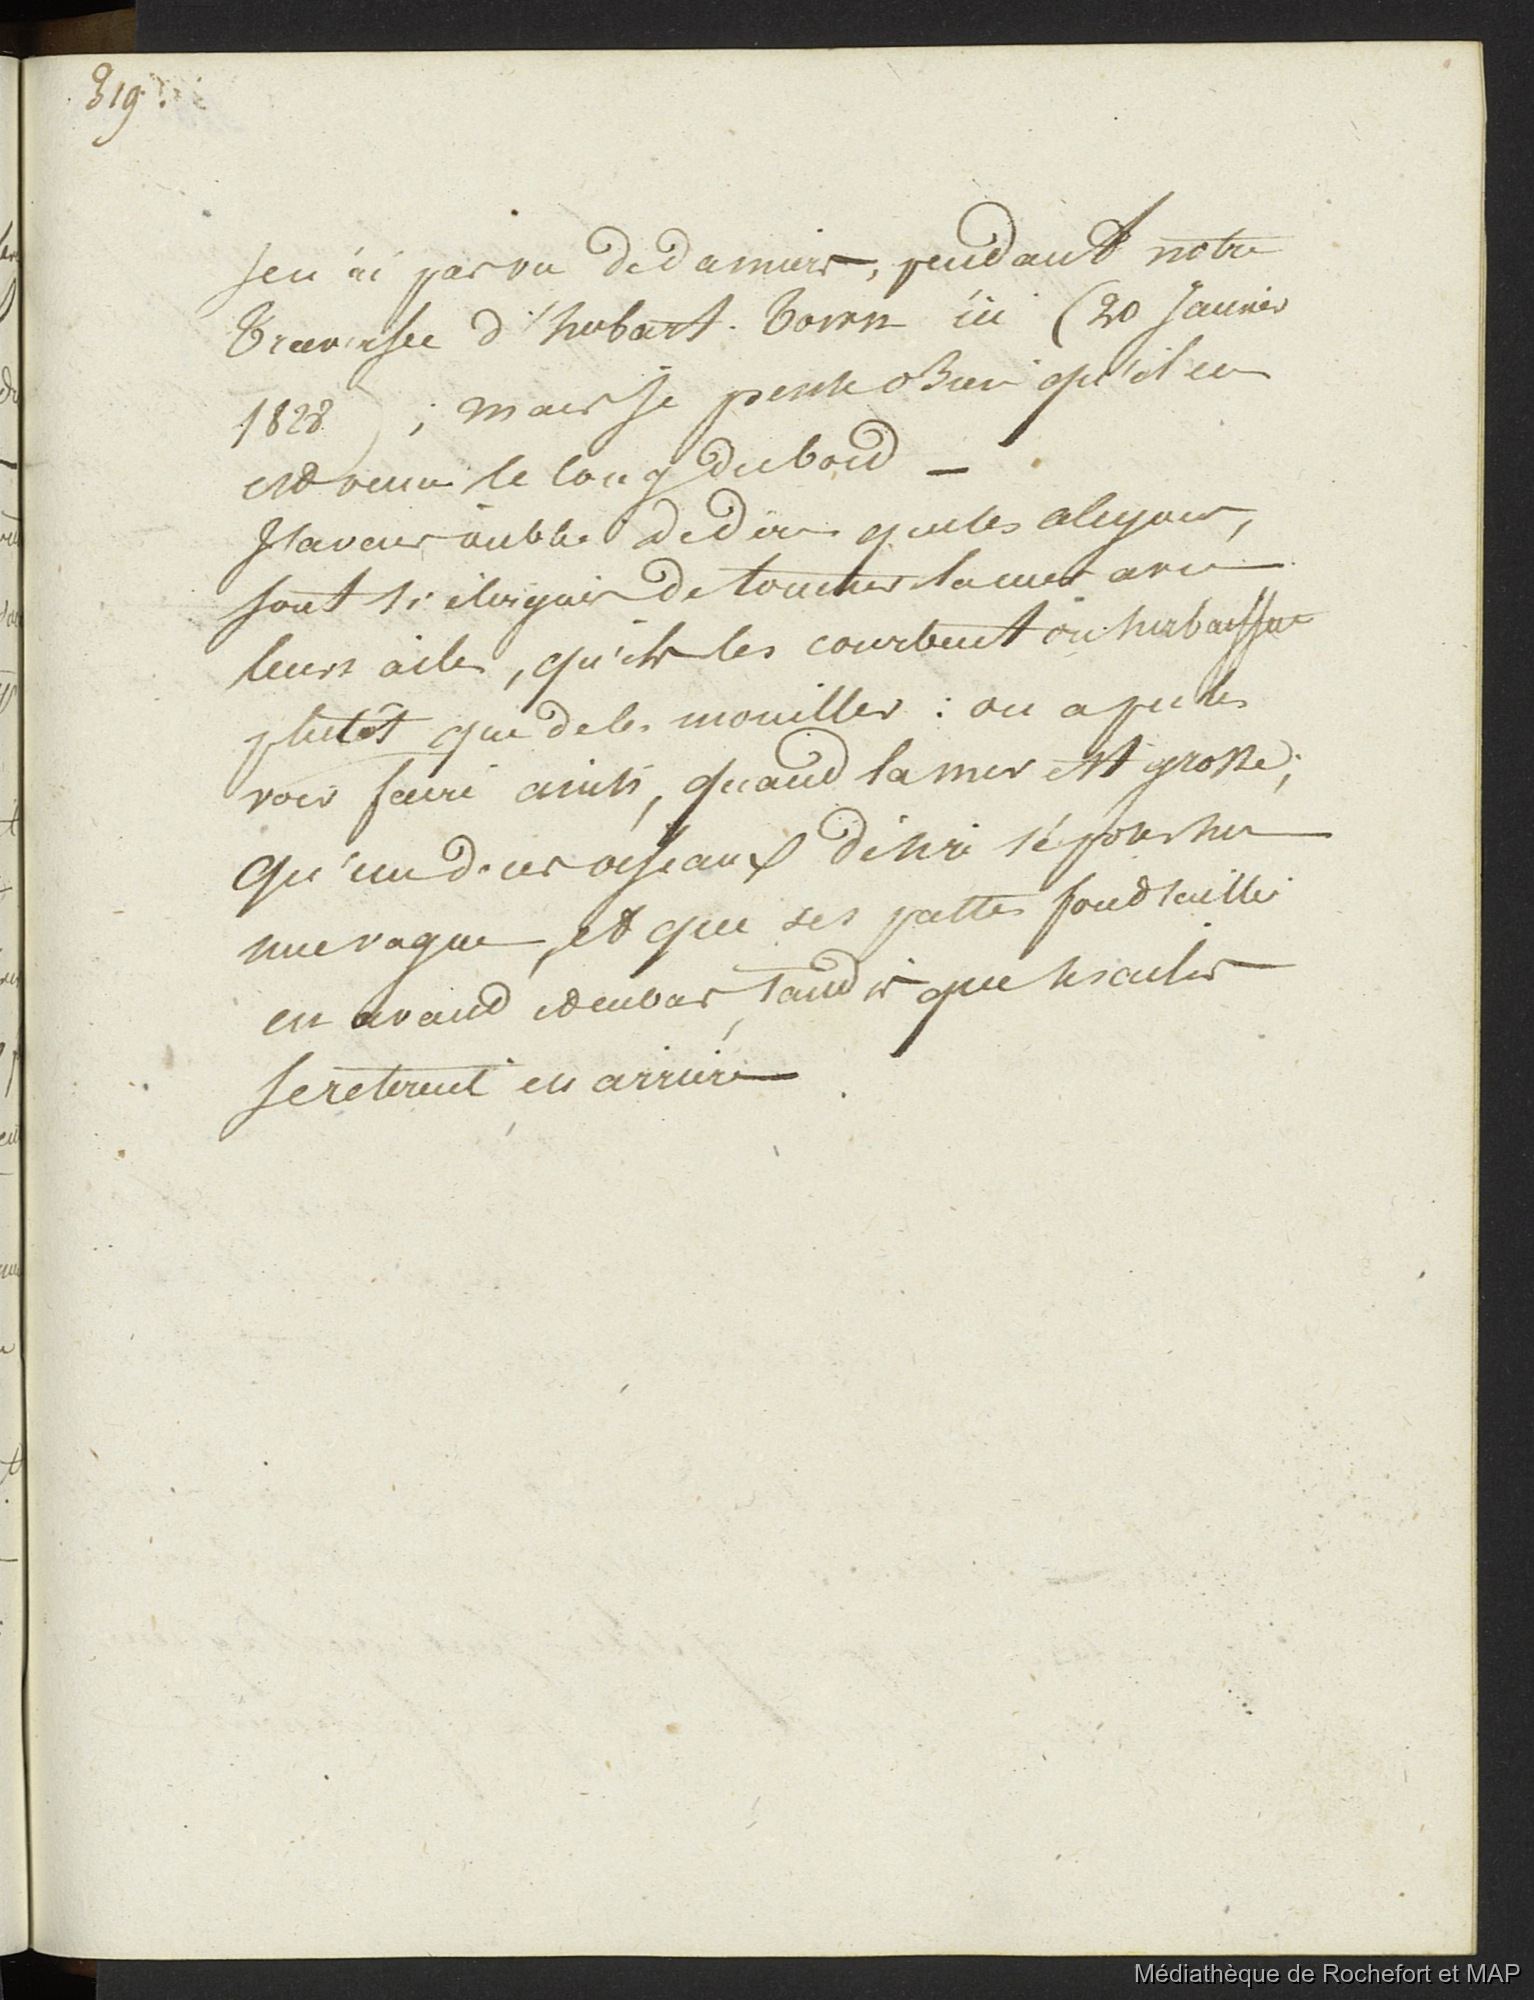 319.
je n'ai pas vu de damiers, pendant notre
traversée d'hobart-town ici (20 Janvier
1828) ; mais je pense bien qu'il en
est venu le long du bord _
J'avais oublié de dire que les alcyons,
sont si éloignés de toucher la mer avec
leurs ailes, qu'ils les courbent
plutôt que de les mouiller : on a pu les
voir faire ainsi, quand la mer est grosse;
qu'un de ces oiseaux désire
une vague, et que ses pattes sont
en avand et en bas, tandis que les ailes
se retirent en arriere
Médiathèque de Rochefort et MAP